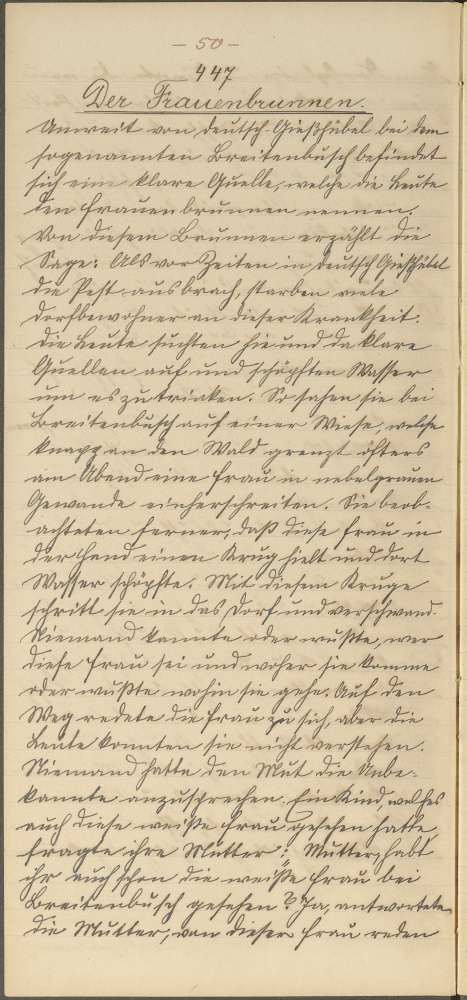 - 50 -
447
Der Frauenbrunnen.
Unweit von Deutsch-Gießhübel bei dem
sogenannten Breitenbusch befindet
sich eine klare Quelle, welche die Leute
den Frauenbrunnen nennen.
Von diesem Brunnen erzählt die
Sage: Als vor Zeiten in Deutsch Gießhübel
die Pest ausbrach, starben viele
Dorfbewohner an dieser Krankheit.
Die Leute suchten hie und da klare
Quellen auf und schöpften Wasser
um es zu trinken. So sahen sie bei
Breitenbusch auf einer Wiese, welche
knapp an den Wald grenzt öfters
am Abend eine Frau in nebelgrauen
Gewande einherschreiten. Sie beob-
achteten ferner, daß diese Frau in
der Hand einen Krug hielt und dort
Wasser schöpfte. Mit diesem Kruge
schritt sie in das Dorf und verschwand.
Niemand kannte oder wußte, wer
diese Frau sei und woher sie komme
oder wußte wohin sie gehe. Auf den
Weg redete die Frau zu sich, aber die
Leute konnten sie nicht verstehen.
Niemand hatte den Mut die Unbe-
kannte anzusprechen. Ein Kind, welches
auch diese weiße Frau gesehen hatte,
fragte ihre Mutter: Mutter, habt
ihr auch schon die weiße Frau bei
Breitenbusch gesehen? Ja, antwortete
die Mutter, von dieser Frau reden